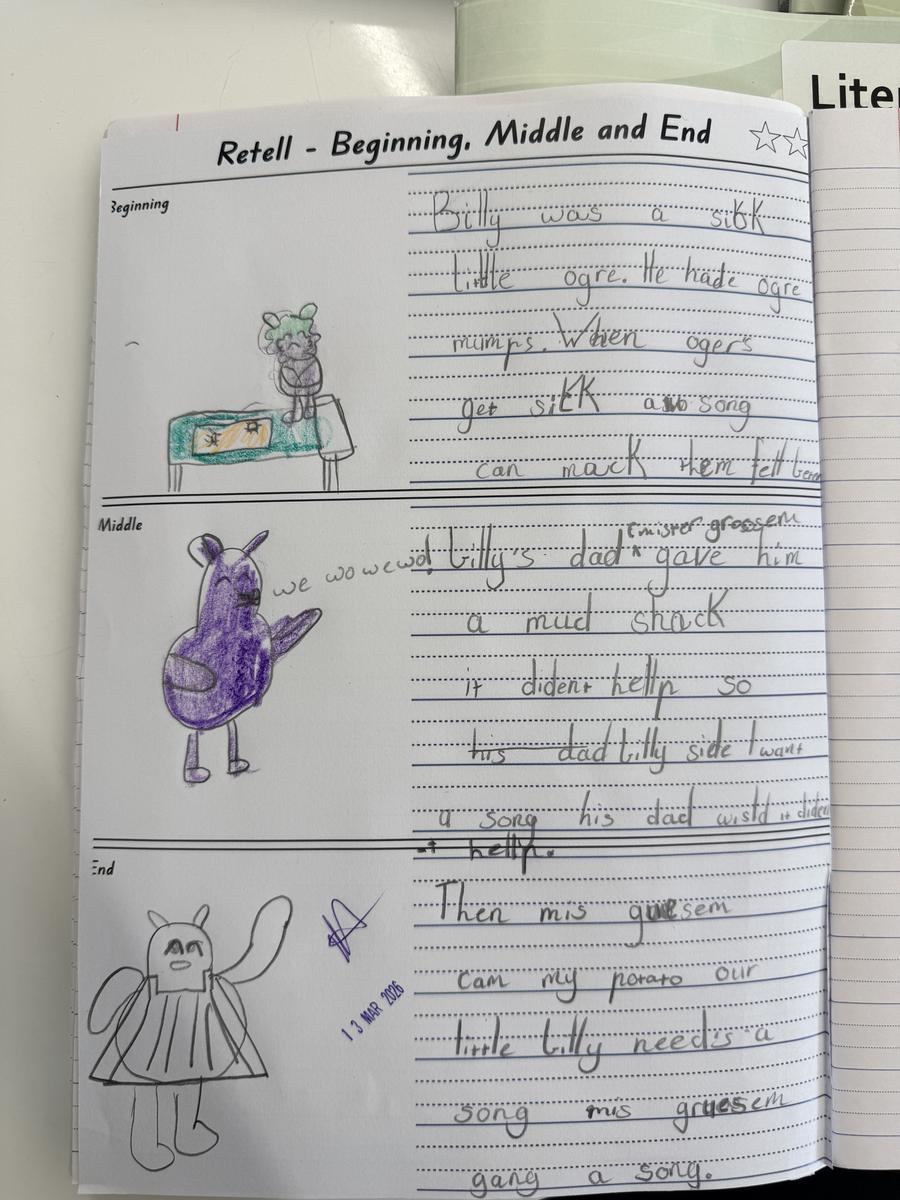 Liter
Retell - Beginning, Middle and End
Beginning
Billy was a sikk
little ogre. He hade ogre
mumps. When ogers
get sikk a song
can mack them fell
Middle
we wo we wo!
(mister grossem
billy's dad ^ gave him
a mud shack
it dident hellp so
his dad billy side I want
a song his dad wistd it diden
-t hellp.
End
Then mis gruesem
cam my potato our
little billy needs a
song mis gruesem
gang a song.
13 MAR 2026